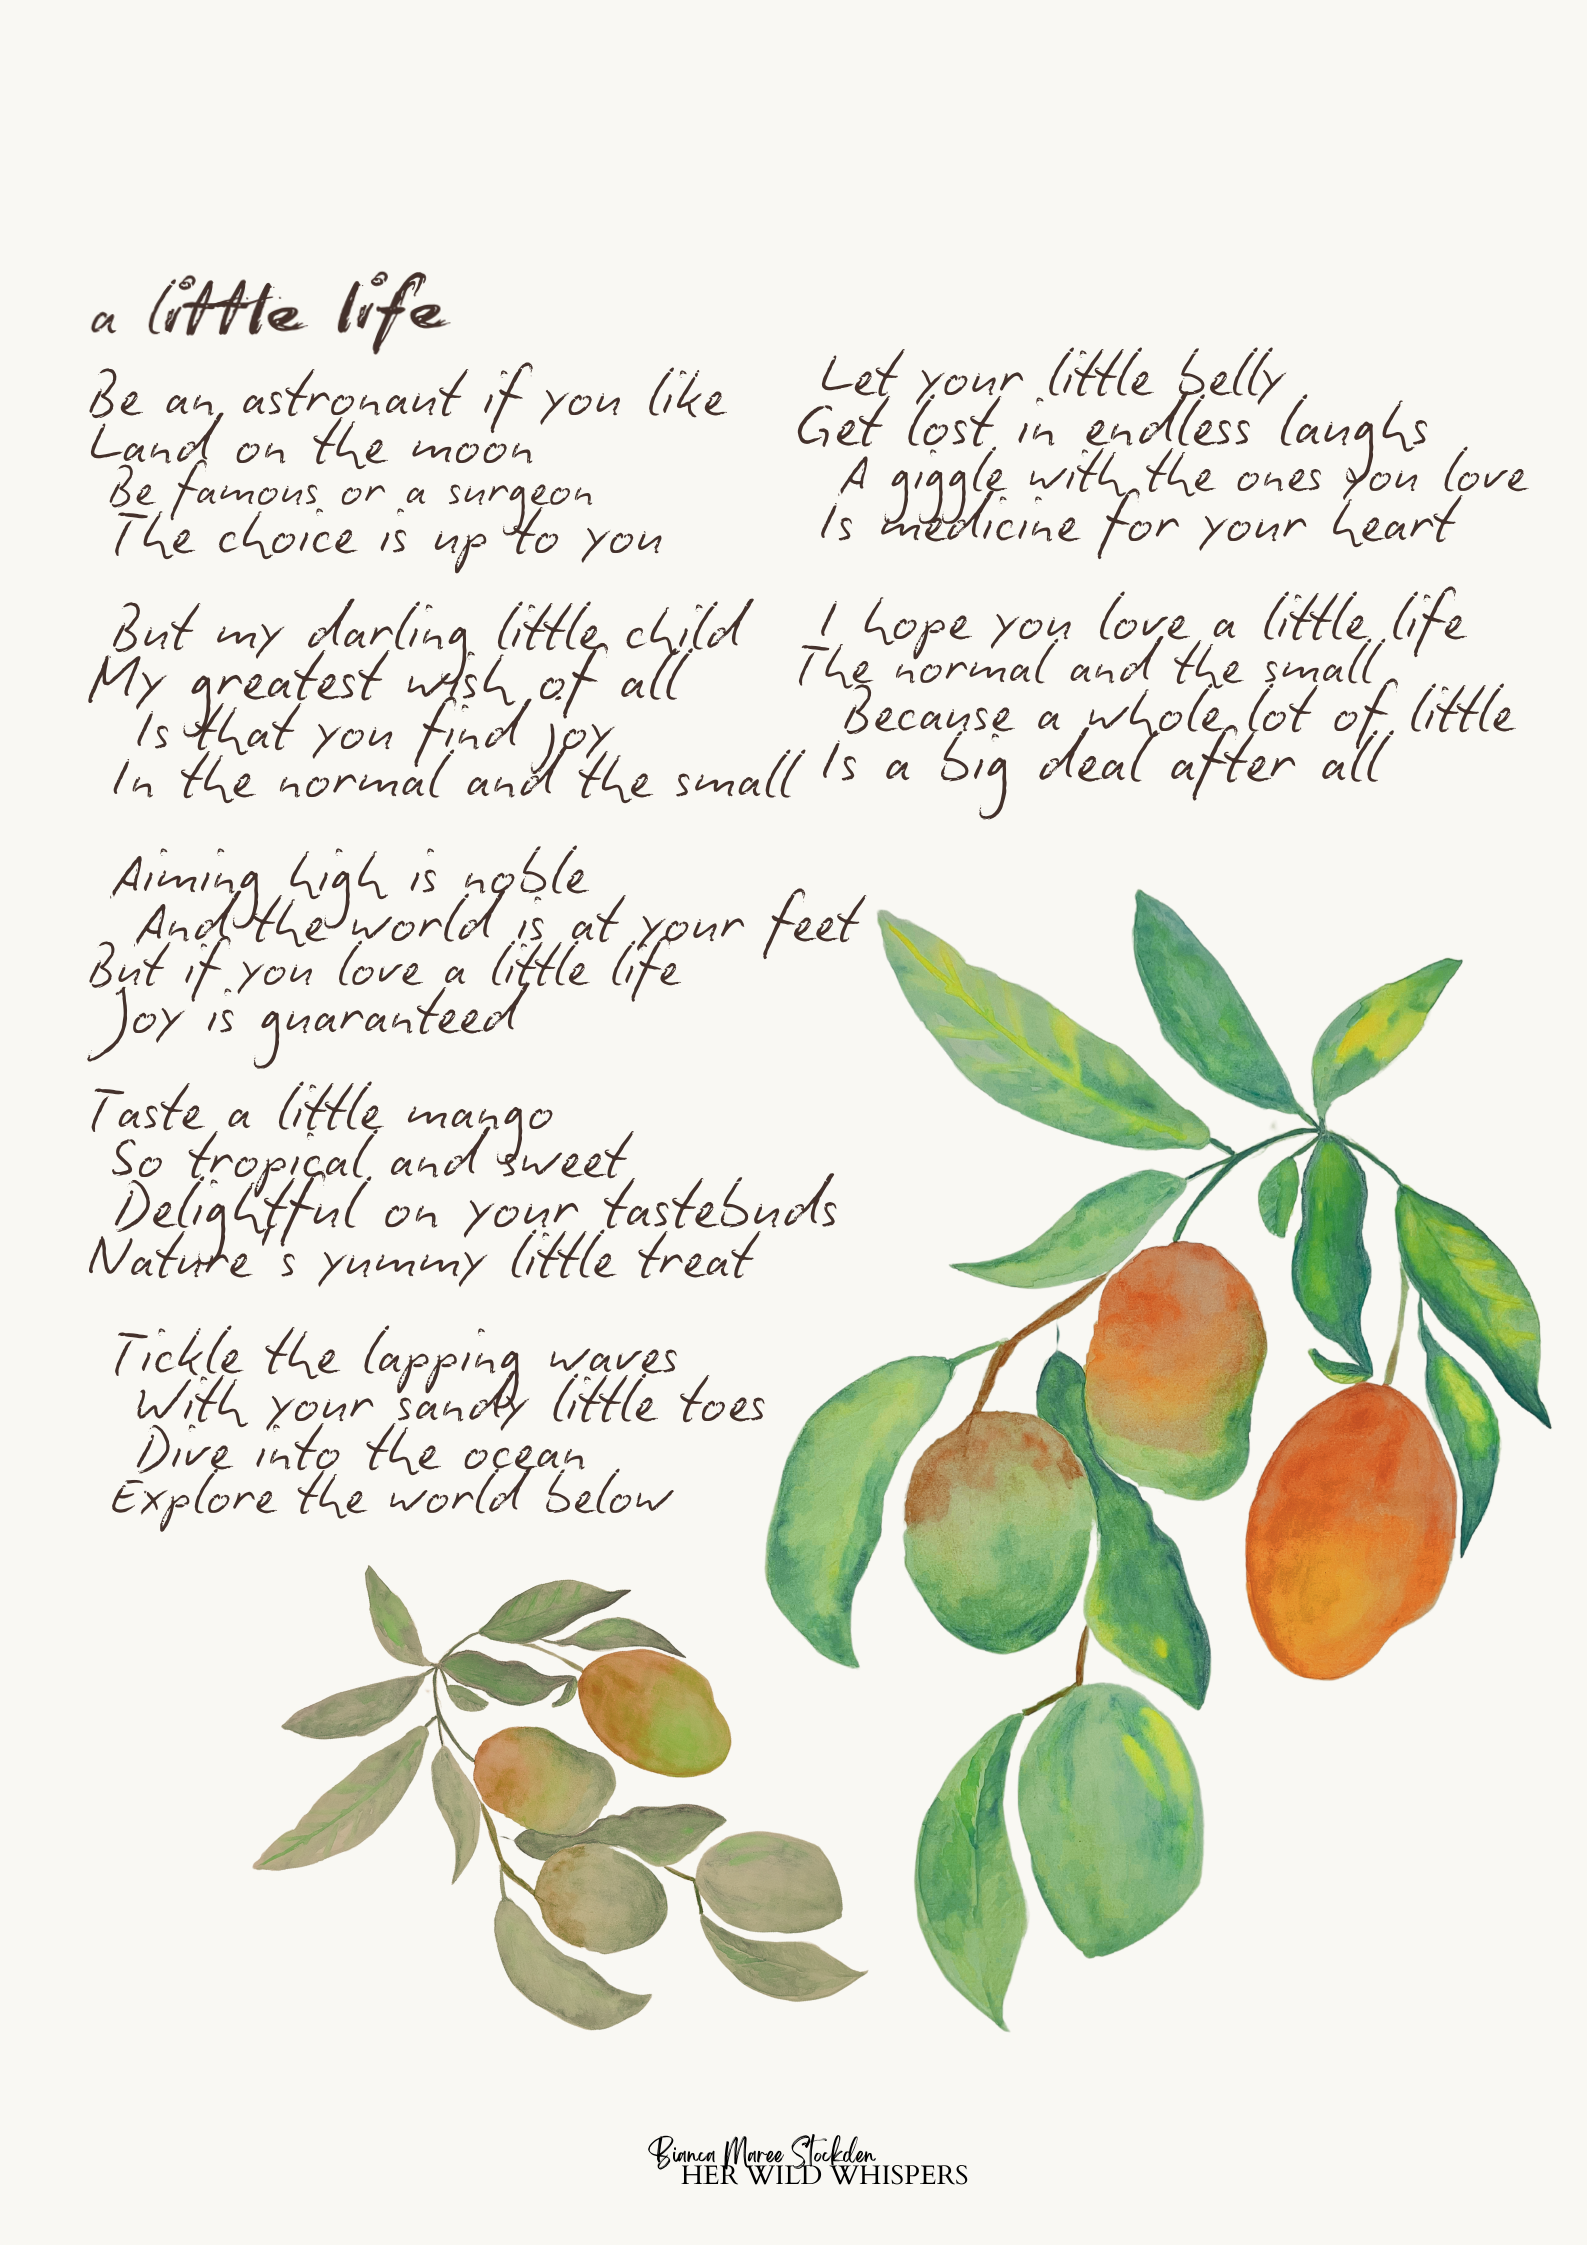 a little life
Be an astronaut if you like
Land on the moon
Be famous or a surgeon
The choice is up to you
But my darling little child
My greatest wish of all
Is that you find joy
In the normal and the small
Aiming high is noble
And the world is at your feet
But if you love a little life
Joy is guaranteed
Taste a little mango
So tropical and sweet
Delightful on your tastebuds
Nature s yummy little treat
Tickle the lapping waves
With your sandy little toes
Dive into the ocean
Explore the world below
Let your little belly
Get lost in endless laughs
A giggle with the ones you love
Is medicine for your heart
I hope you love a little life
The normal and the small
Because a whole lot of little
Is a big deal after all
Bianca Maree Stockden
HER WILD WHISPERS